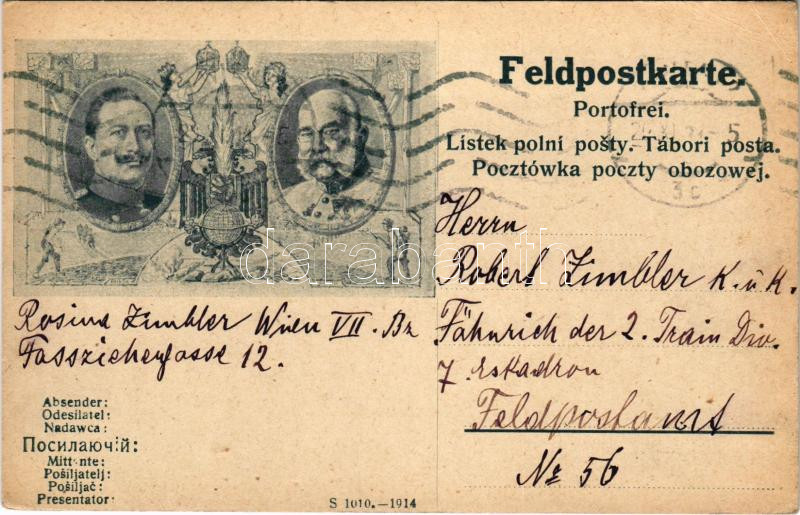 Feldpostkarte.
Portofrei.
Listek polní pošty. Tábori posta.
Pocztówka poczty obozowej.
Herrn
Robert Zimbler K. u. K.
Fähnrich der 2. Train Div.
7 Eskadron
Feldpostamt
№ 56
Rosina Zimbler Wien VII. Bz
Fassziehergasse 12.
Absender:
Odesilatel:
Nadawca:
Посилаючій:
Mittente:
Pošiljatelj:
Pošiljač:
Presentator:
S 1010.—1914
darabanth